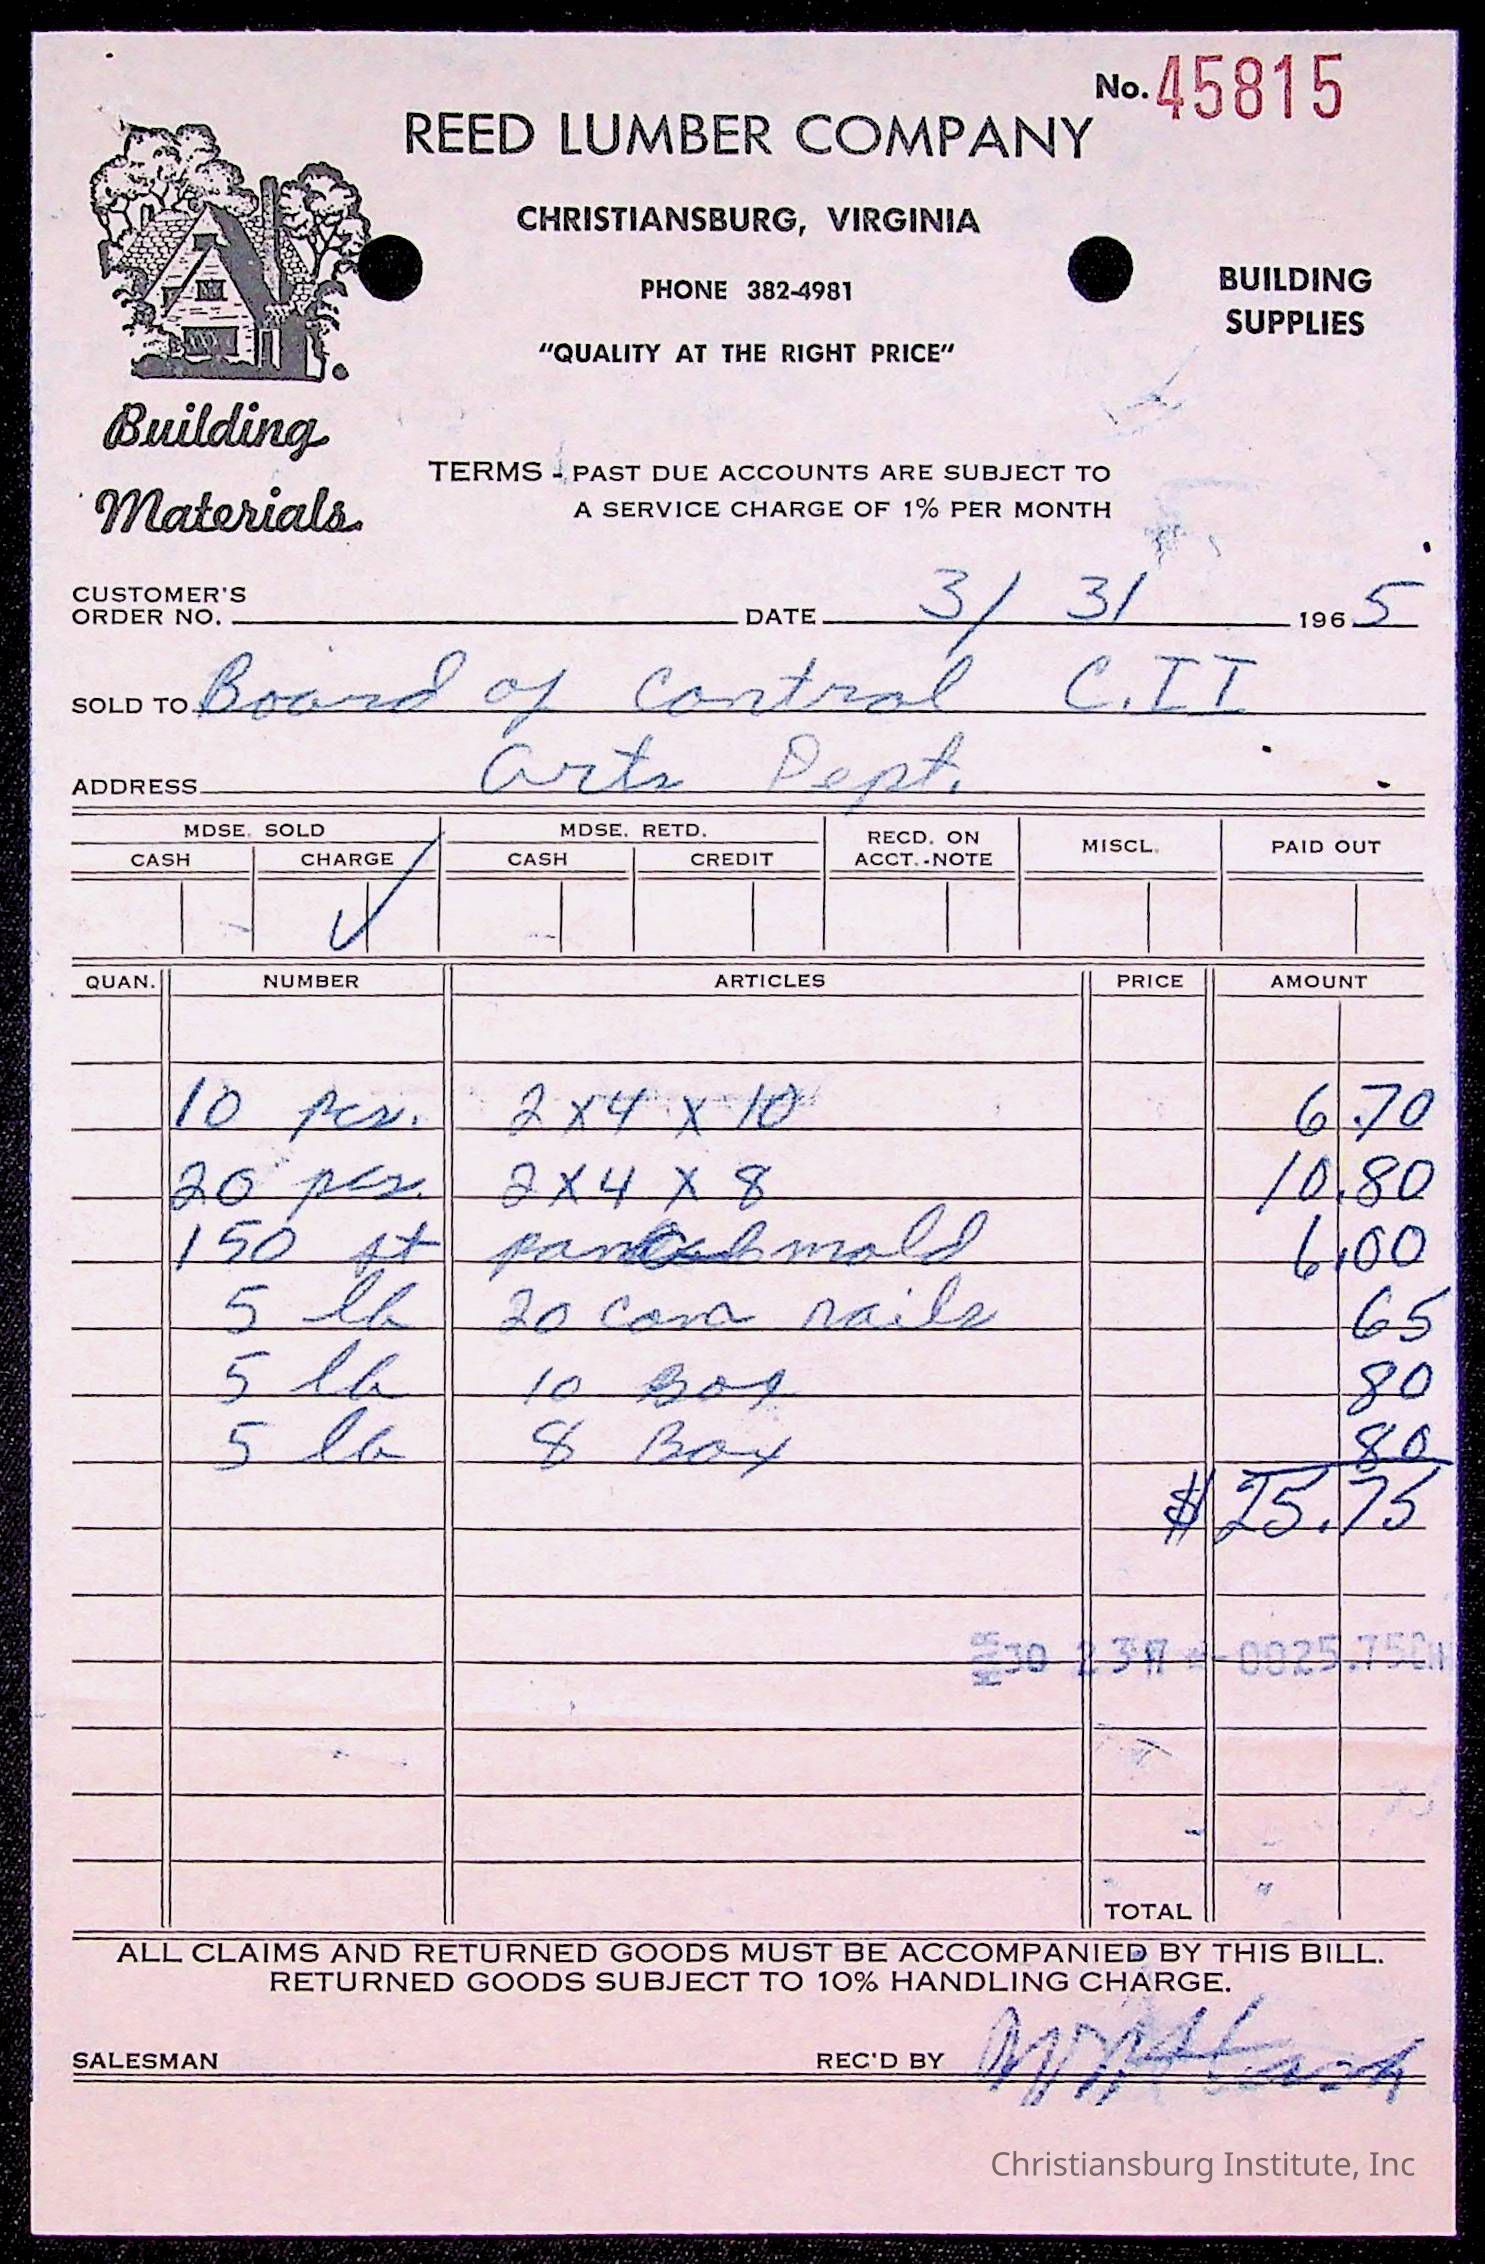 No. 45815
REED LUMBER COMPANY
CHRISTIANSBURG, VIRGINIA
PHONE 382-4981
"QUALITY AT THE RIGHT PRICE"
BUILDING
SUPPLIES
Building
Materials
TERMS - PAST DUE ACCOUNTS ARE SUBJECT TO
A SERVICE CHARGE OF 1% PER MONTH
CUSTOMER'S
ORDER NO. DATE 3/ 31 196 5
SOLD TO Board of Control C.II
ADDRESS Arts Dept.
MDSE. SOLD MDSE. RETD. RECD. ON ACCT.-NOTE MISCL. PAID OUT
CASH CHARGE CASH CREDIT
QUAN. NUMBER ARTICLES PRICE AMOUNT
10 pcs. 2 x 4 x 10 6.70
20 pcs. 2 x 4 x 8 10.80
150 ft mold 6.00
5 lb 20 com nails 65
5 lb 10 Box 80
5 lb 8 Box 80
$ 25.75
MAR 30 0025.75
TOTAL
ALL CLAIMS AND RETURNED GOODS MUST BE ACCOMPANIED BY THIS BILL.
RETURNED GOODS SUBJECT TO 10% HANDLING CHARGE.
SALESMAN REC'D BY
Christiansburg Institute, Inc